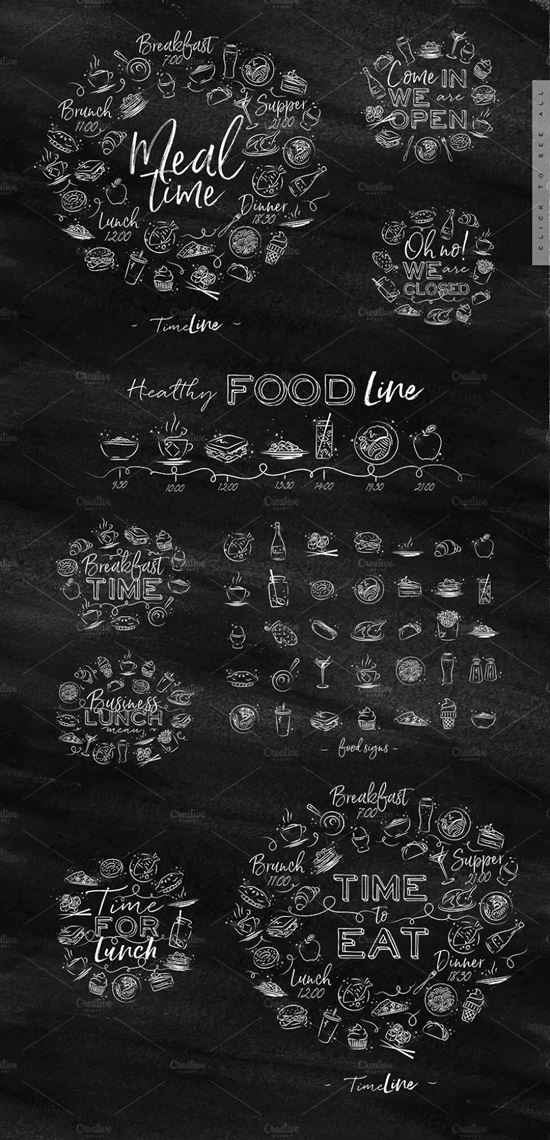 Breakfast
7.00
Brunch
11.00
Supper
21.00
Meal
time
Lunch
12.00
Dinner
18.30
- TimeLine -
Come IN
WE are
OPEN
CLICK TO SEE ALL
Oh no!
WE are
CLOSED
Healthy FOOD Line
9:30 10:00 12:00 13:30 14:00 19:30 21:00
Breakfast
TIME
Business
LUNCH
menu
- food signs -
Time
FOR
Lunch
Breakfast
7.00
Brunch
11.00
Supper
21.00
TIME
to
EAT
Lunch
12.00
Dinner
18.30
- TimeLine -
Creative
MARKET